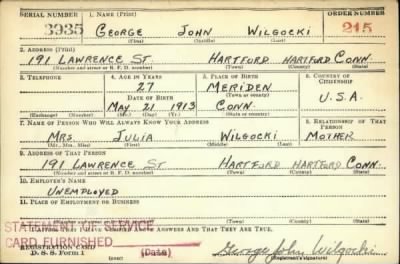 SERIAL NUMBER 1. NAME (Print) ORDER NUMBER
3935 GEORGE JOHN WILGOCKI 215
(First) (Middle) (Last)
2. ADDRESS (Print)
191 LAWRENCE ST. HARTFORD HARTFORD CONN.
(Number and street or R. F. D. number) (Town) (County) (State)
3. TELEPHONE 4. AGE IN YEARS 5. PLACE OF BIRTH 6. COUNTRY OF CITIZENSHIP
27 MERIDEN
DATE OF BIRTH (Town or county)
MAY 21 1913 CONN. U.S.A.
(Exchange) (Number) (Mo.) (Day) (Yr.) (State or country)
7. NAME OF PERSON WHO WILL ALWAYS KNOW YOUR ADDRESS 8. RELATIONSHIP OF THAT PERSON
MRS. JULIA WILGOCKI MOTHER
(Mr., Mrs., Miss) (First) (Middle) (Last)
9. ADDRESS OF THAT PERSON
191 LAWRENCE ST HARTFORD HARTFORD CONN.
(Number and street or R. F. D. number) (Town) (County) (State)
10. EMPLOYER'S NAME
UNEMPLOYED
11. PLACE OF EMPLOYMENT OR BUSINESS
STATEMENT OF SERVICE
CARD FURNISHED
(Date)
ANSWERS AND THAT THEY ARE TRUE.
REGISTRATION CARD
D. S. S. Form 1
(over)
George John Wilgocki
(Registrant's signature)